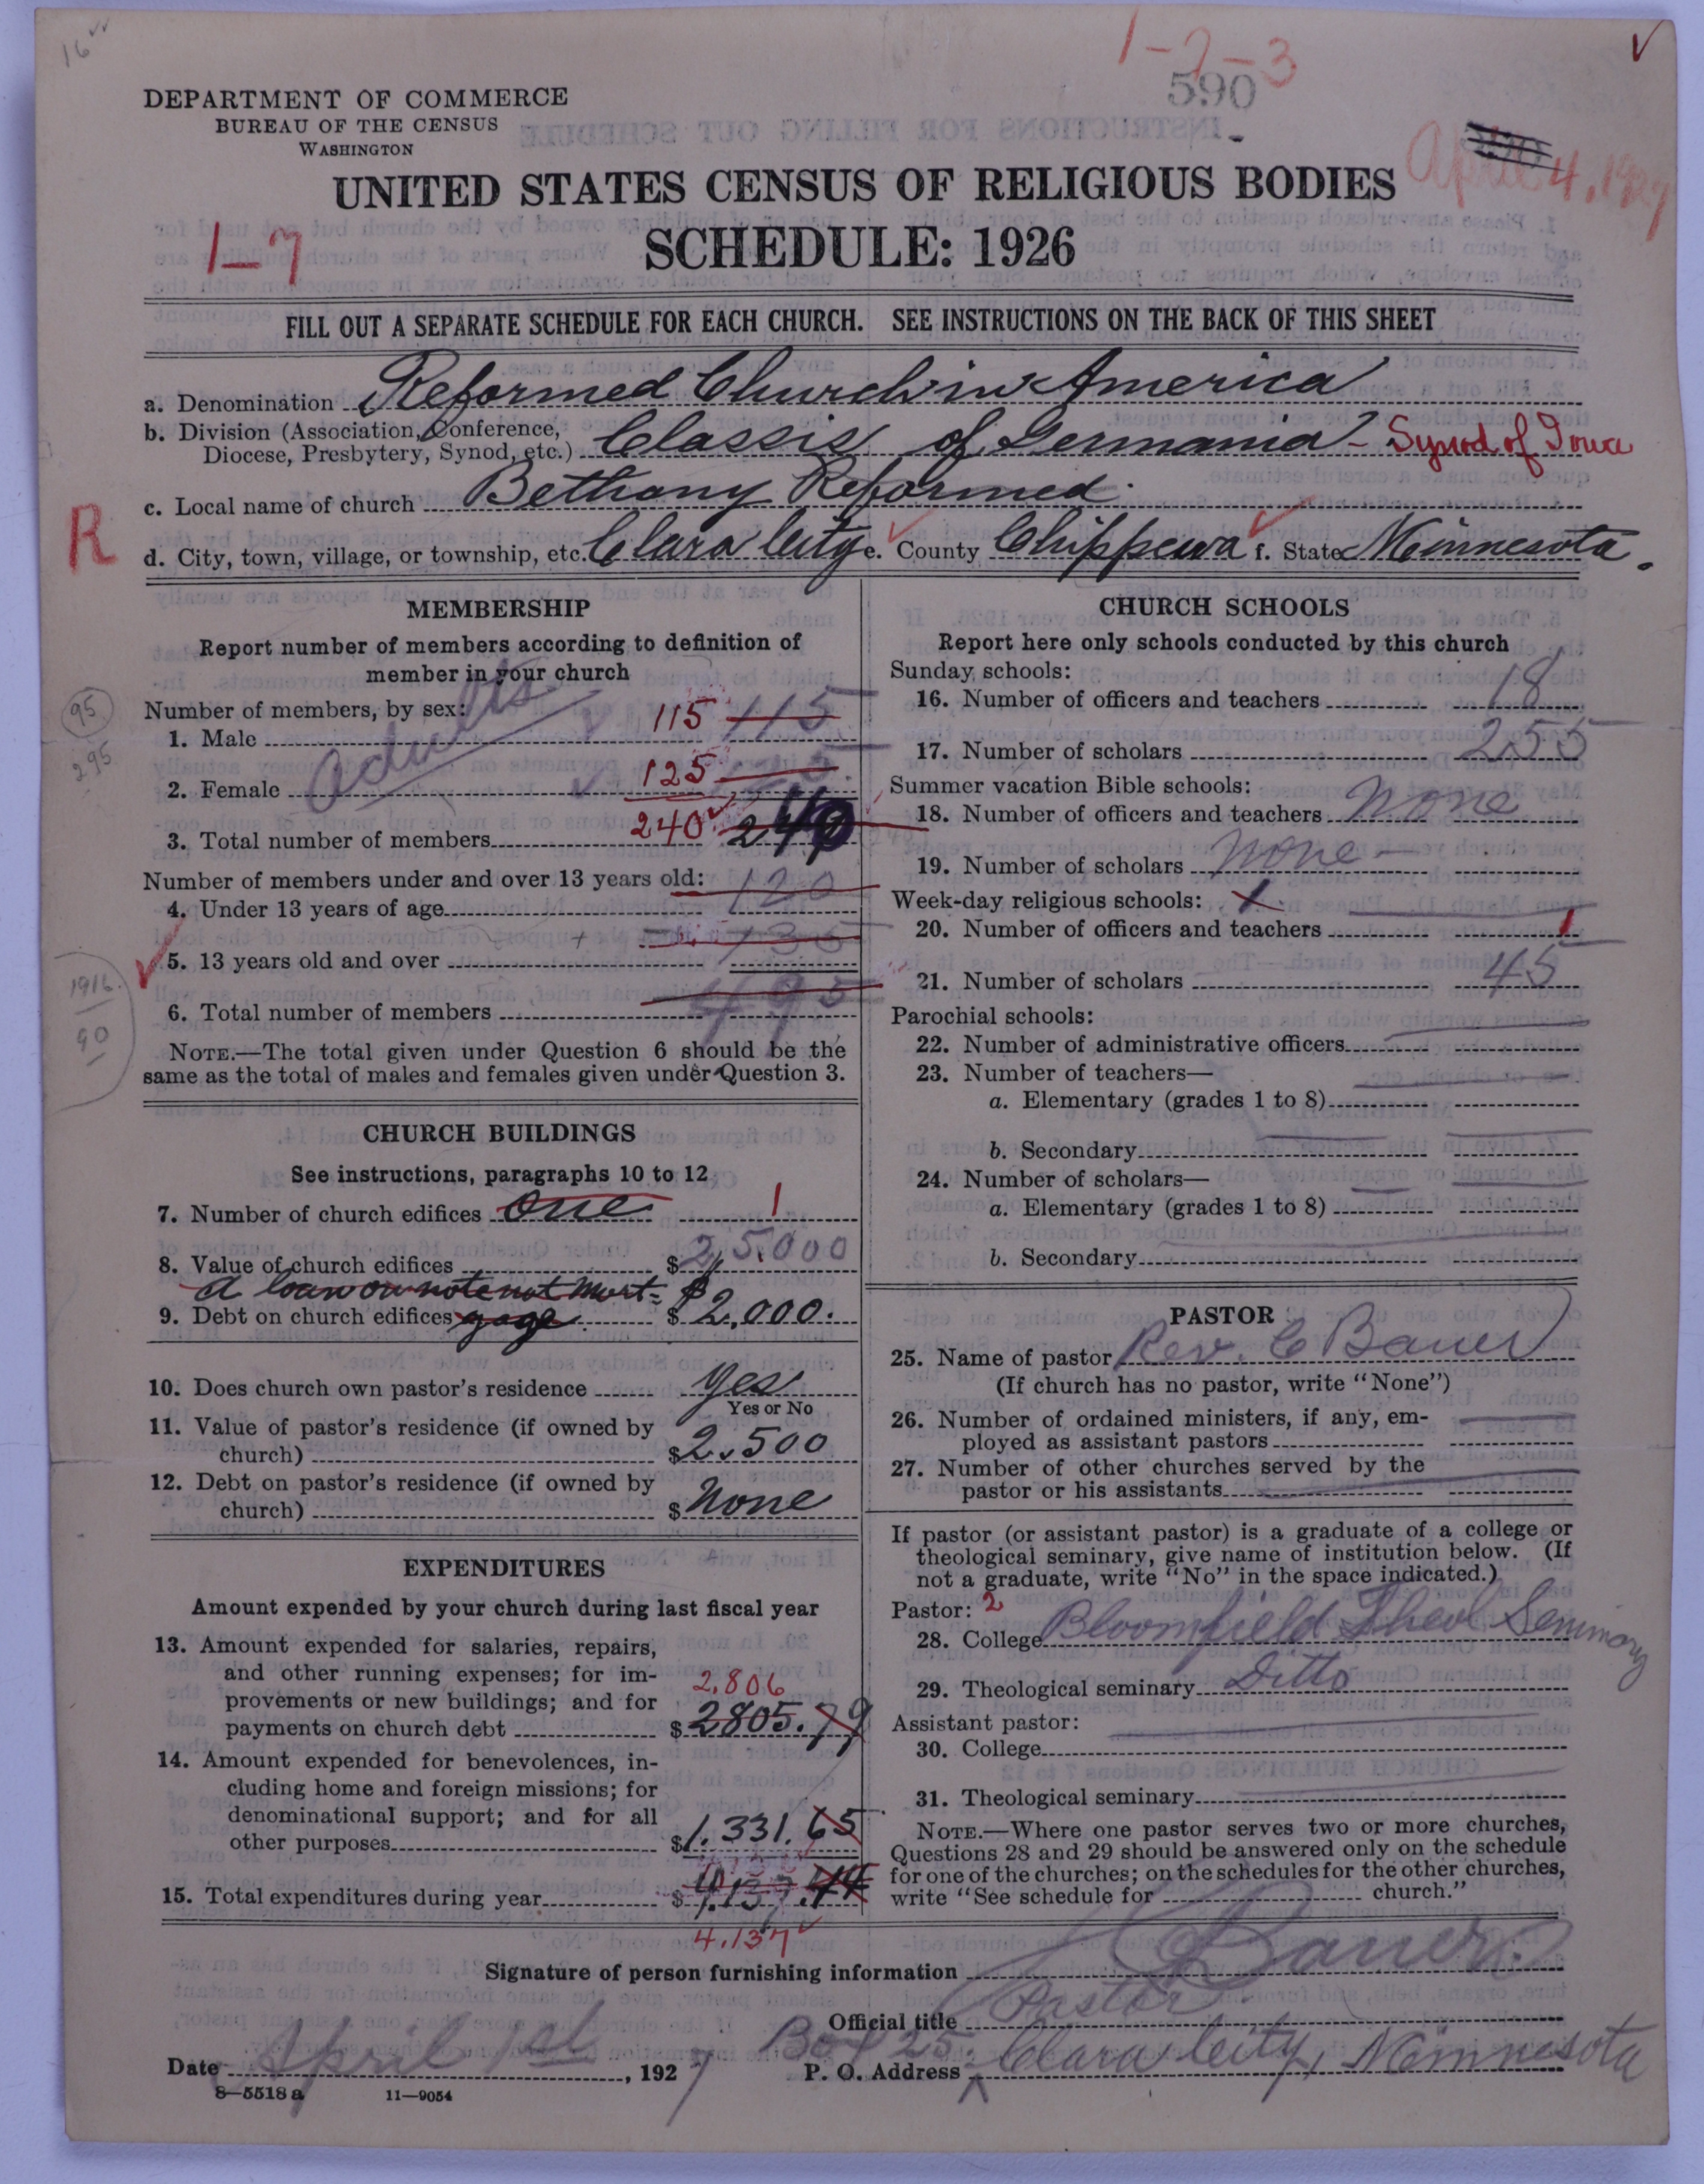 16
1-2-3
590
DEPARTMENT OF COMMERCE
BUREAU OF THE CENSUS
WASHINGTON
April 4, 1927
UNITED STATES CENSUS OF RELIGIOUS BODIES
1-7
SCHEDULE: 1926
FILL OUT A SEPARATE SCHEDULE FOR EACH CHURCH. SEE INSTRUCTIONS ON THE BACK OF THIS SHEET
a. Denomination Reformed Church in America
b. Division (Association, Conference, Diocese, Presbytery, Synod, etc.) Classis of Germania - Synod of Iowa
c. Local name of church Bethany Reformed.
R
d. City, town, village, or township, etc. Clara City e. County Chippewa f. State Minnesota.
MEMBERSHIP
Report number of members according to definition of
member in your church
Adults
95
295
Number of members, by sex:
1. Male 115 115
2. Female 125 125
3. Total number of members 240 240
Number of members under and over 13 years old:
4. Under 13 years of age 120
5. 13 years old and over
1916
90
6. Total number of members 495
NOTE.—The total given under Question 6 should be the
same as the total of males and females given under Question 3.
CHURCH BUILDINGS
See instructions, paragraphs 10 to 12
7. Number of church edifices One 1
8. Value of church edifices $25,000
a loan on note not mort-
9. Debt on church edifices gage $2,000.
10. Does church own pastor's residence Yes
Yes or No
11. Value of pastor's residence (if owned by
church) $2,500
12. Debt on pastor's residence (if owned by
church) $None
EXPENDITURES
Amount expended by your church during last fiscal year
13. Amount expended for salaries, repairs,
and other running expenses; for im-
provements or new buildings; and for 2,806
payments on church debt $2805.79
14. Amount expended for benevolences, in-
cluding home and foreign missions; for
denominational support; and for all
other purposes $1,331.65
15. Total expenditures during year $4,137.44
4,137
CHURCH SCHOOLS
Report here only schools conducted by this church
Sunday schools:
16. Number of officers and teachers 18
17. Number of scholars 255
Summer vacation Bible schools:
18. Number of officers and teachers None
19. Number of scholars None
Week-day religious schools: 1
20. Number of officers and teachers 1
21. Number of scholars 45
Parochial schools:
22. Number of administrative officers
23. Number of teachers—
a. Elementary (grades 1 to 8)
b. Secondary
24. Number of scholars—
a. Elementary (grades 1 to 8)
b. Secondary
PASTOR
25. Name of pastor Rev. C Bauer
(If church has no pastor, write "None")
26. Number of ordained ministers, if any, em-
ployed as assistant pastors
27. Number of other churches served by the
pastor or his assistants
If pastor (or assistant pastor) is a graduate of a college or
theological seminary, give name of institution below. (If
not a graduate, write "No" in the space indicated.)
Pastor: 2
28. College Bloomfield Theol Seminary
29. Theological seminary Ditto
Assistant pastor:
30. College
31. Theological seminary
NOTE.—Where one pastor serves two or more churches,
Questions 28 and 29 should be answered only on the schedule
for one of the churches; on the schedules for the other churches,
write "See schedule for church."
Signature of person furnishing information C Bauer.
Official title Pastor
Date April 1st, 1927
P. O. Address Box 25, Clara City, Minnesota
8—5518 a 11—9054